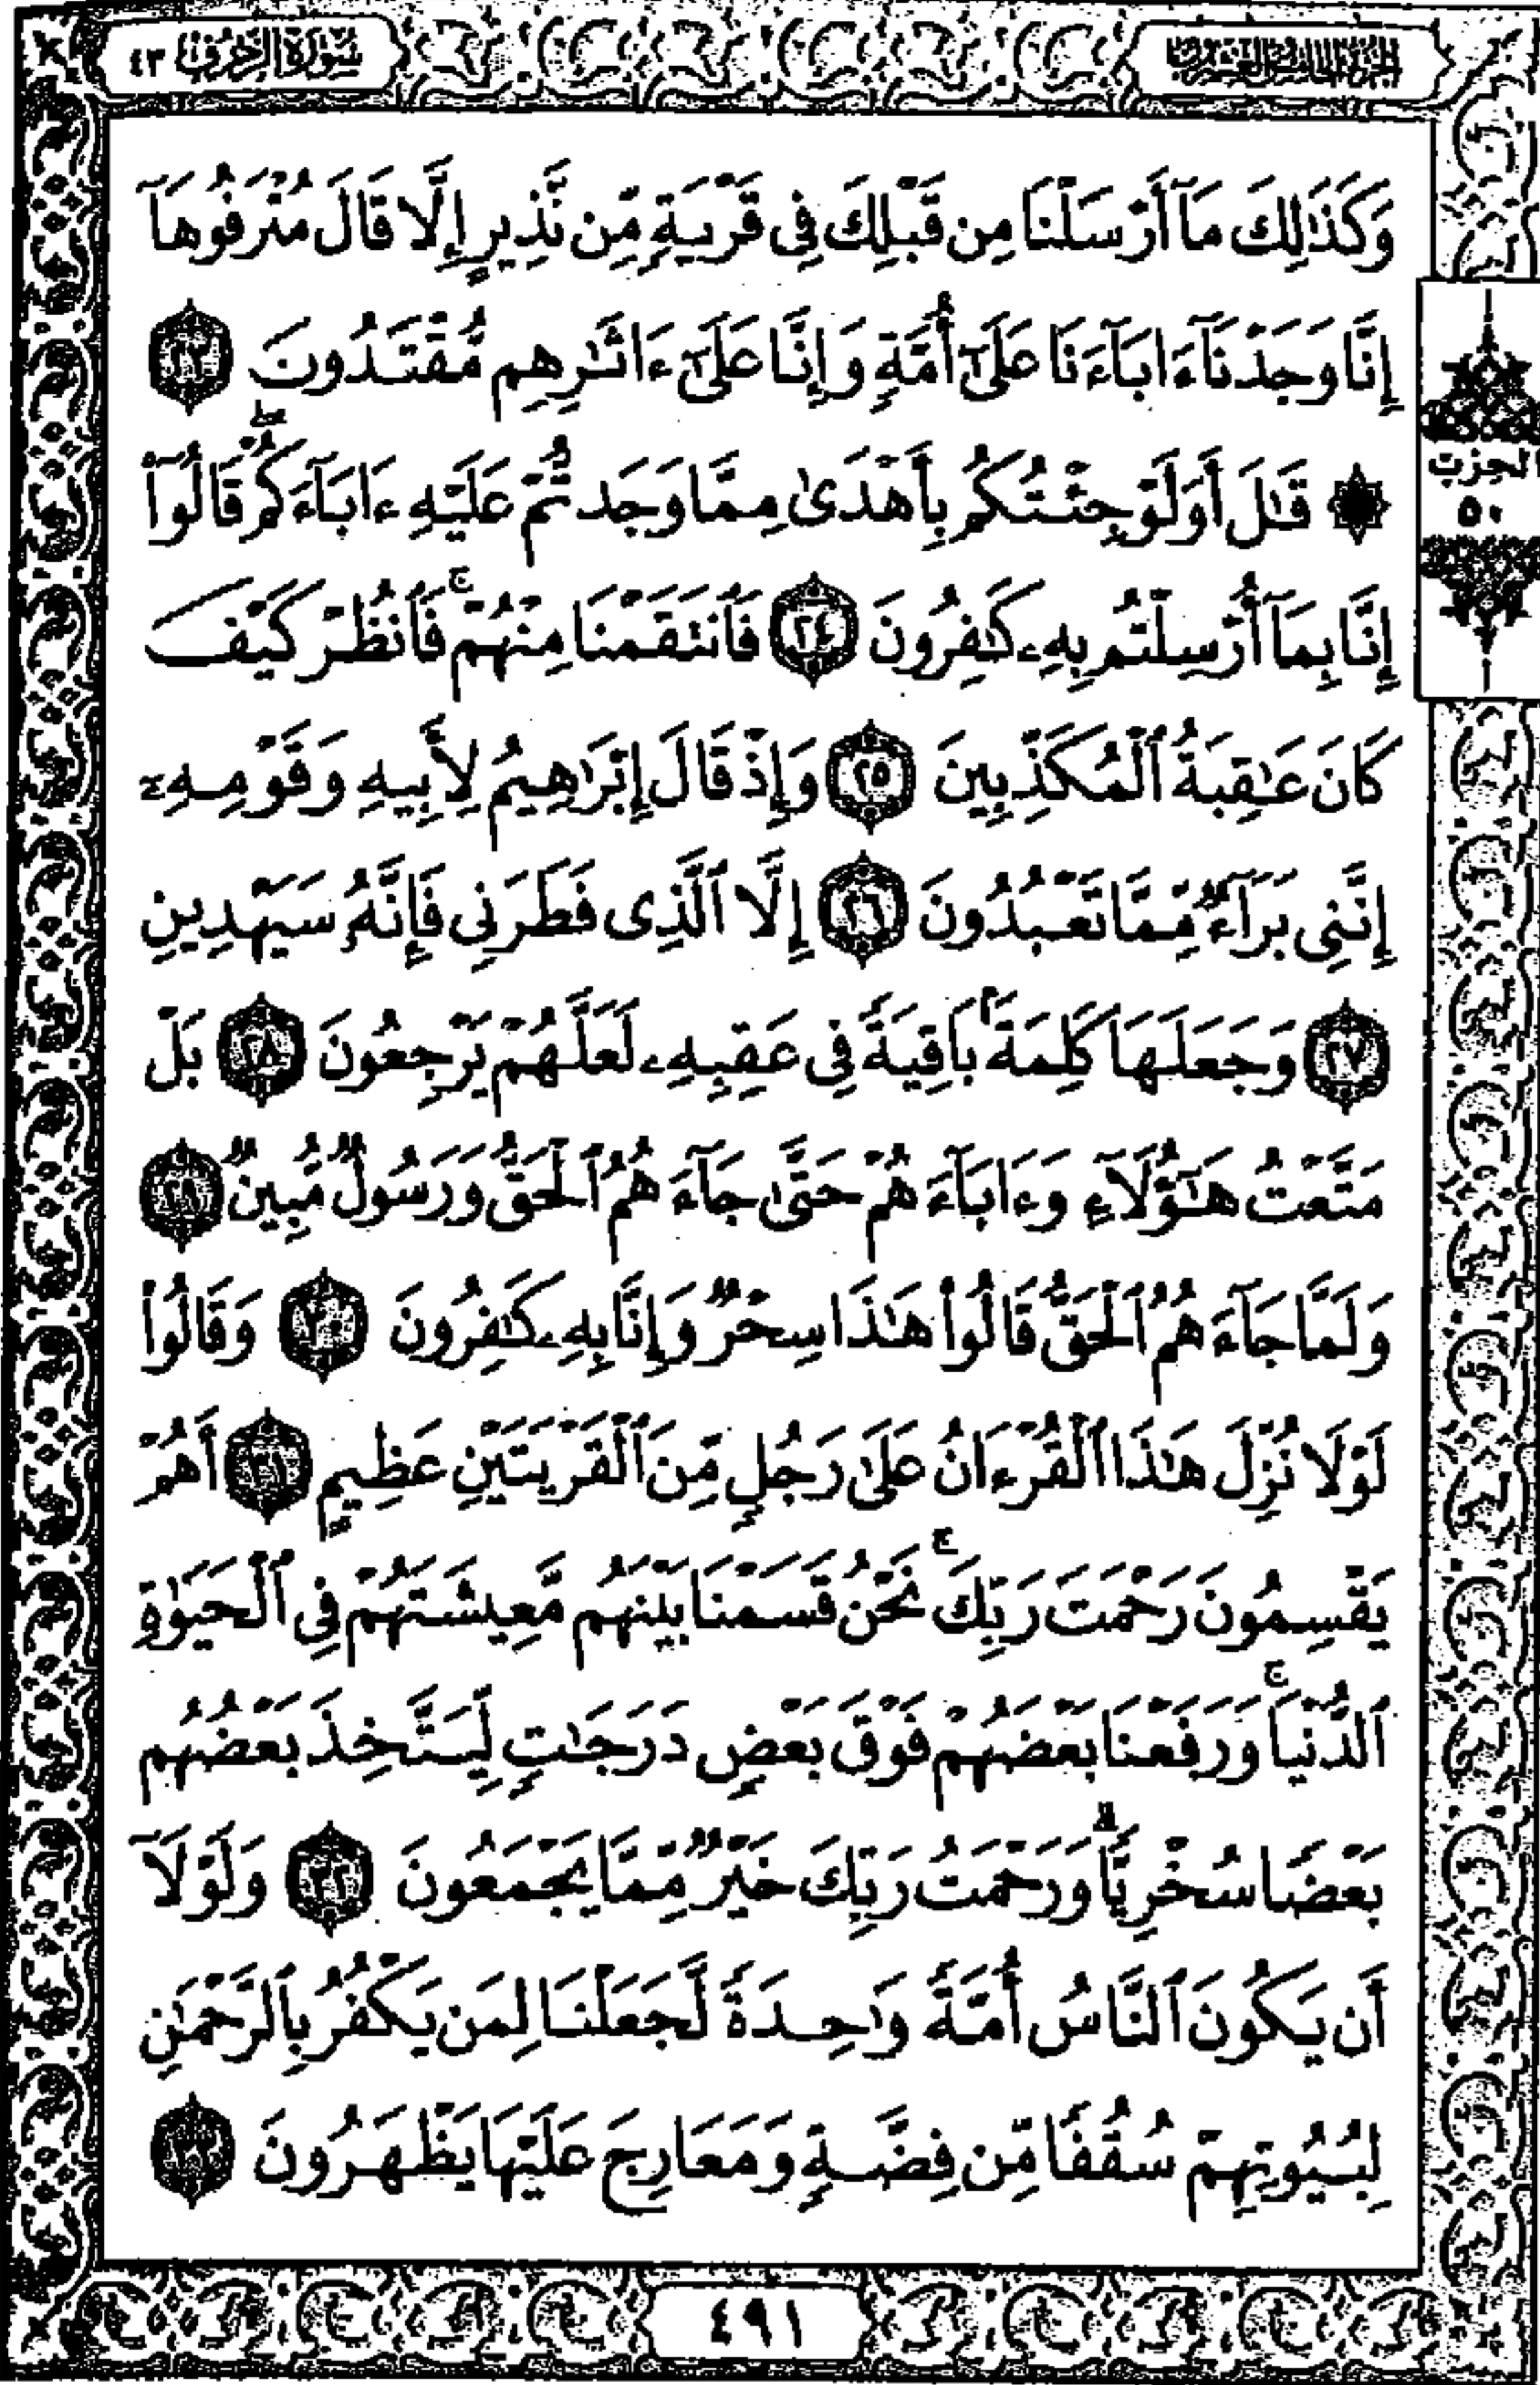 الجزء الخامس والعشرون
سورة الزخرف ٤٣
وَكَذَٰلِكَ مَآ أَرْسَلْنَا مِن قَبْلِكَ فِى قَرْيَةٍ مِّن نَّذِيرٍ إِلَّا قَالَ مُتْرَفُوهَآ
إِنَّا وَجَدْنَآ ءَابَآءَنَا عَلَىٰٓ أُمَّةٍ وَإِنَّا عَلَىٰٓ ءَاثَٰرِهِم مُّقْتَدُونَ ٢٣
۞ قَٰلَ أَوَلَوْ جِئْتُكُم بِأَهْدَىٰ مِمَّا وَجَدتُّمْ عَلَيْهِ ءَابَآءَكُمْ ۖ قَالُوٓا۟
إِنَّا بِمَآ أُرْسِلْتُم بِهِۦ كَٰفِرُونَ ٢٤ فَٱنتَقَمْنَا مِنْهُمْ ۚ فَٱنظُرْ كَيْفَ
كَانَ عَٰقِبَةُ ٱلْمُكَذِّبِينَ ٢٥ وَإِذْ قَالَ إِبْرَٰهِيمُ لِأَبِيهِ وَقَوْمِهِۦٓ
إِنَّنِى بَرَآءٌ مِّمَّا تَعْبُدُونَ ٢٦ إِلَّا ٱلَّذِى فَطَرَنِى فَإِنَّهُۥ سَيَهْدِينِ
٢٧ وَجَعَلَهَا كَلِمَةًۢ بَاقِيَةً فِى عَقِبِهِۦ لَعَلَّهُمْ يَرْجِعُونَ ٢٨ بَلْ
مَتَّعْتُ هَٰٓؤُلَآءِ وَءَابَآءَهُمْ حَتَّىٰ جَآءَهُمُ ٱلْحَقُّ وَرَسُولٌ مُّبِينٌ ٢٩
وَلَمَّا جَآءَهُمُ ٱلْحَقُّ قَالُوا۟ هَٰذَا سِحْرٌ وَإِنَّا بِهِۦ كَٰفِرُونَ ٣٠ وَقَالُوا۟
لَوْلَا نُزِّلَ هَٰذَا ٱلْقُرْءَانُ عَلَىٰ رَجُلٍ مِّنَ ٱلْقَرْيَتَيْنِ عَظِيمٍ ٣١ أَهُمْ
يَقْسِمُونَ رَحْمَتَ رَبِّكَ ۚ نَحْنُ قَسَمْنَا بَيْنَهُم مَّعِيشَتَهُمْ فِى ٱلْحَيَوٰةِ
ٱلدُّنْيَا ۚ وَرَفَعْنَا بَعْضَهُمْ فَوْقَ بَعْضٍ دَرَجَٰتٍ لِّيَتَّخِذَ بَعْضُهُم
بَعْضًا سُخْرِيًّا ۗ وَرَحْمَتُ رَبِّكَ خَيْرٌ مِّمَّا يَجْمَعُونَ ٣٢ وَلَوْلَآ
أَن يَكُونَ ٱلنَّاسُ أُمَّةً وَٰحِدَةً لَّجَعَلْنَا لِمَن يَكْفُرُ بِٱلرَّحْمَٰنِ
لِبُيُوتِهِمْ سُقُفًا مِّن فِضَّةٍ وَمَعَارِجَ عَلَيْهَا يَظْهَرُونَ ٣٣
الحزب
٥٠
٤٩١